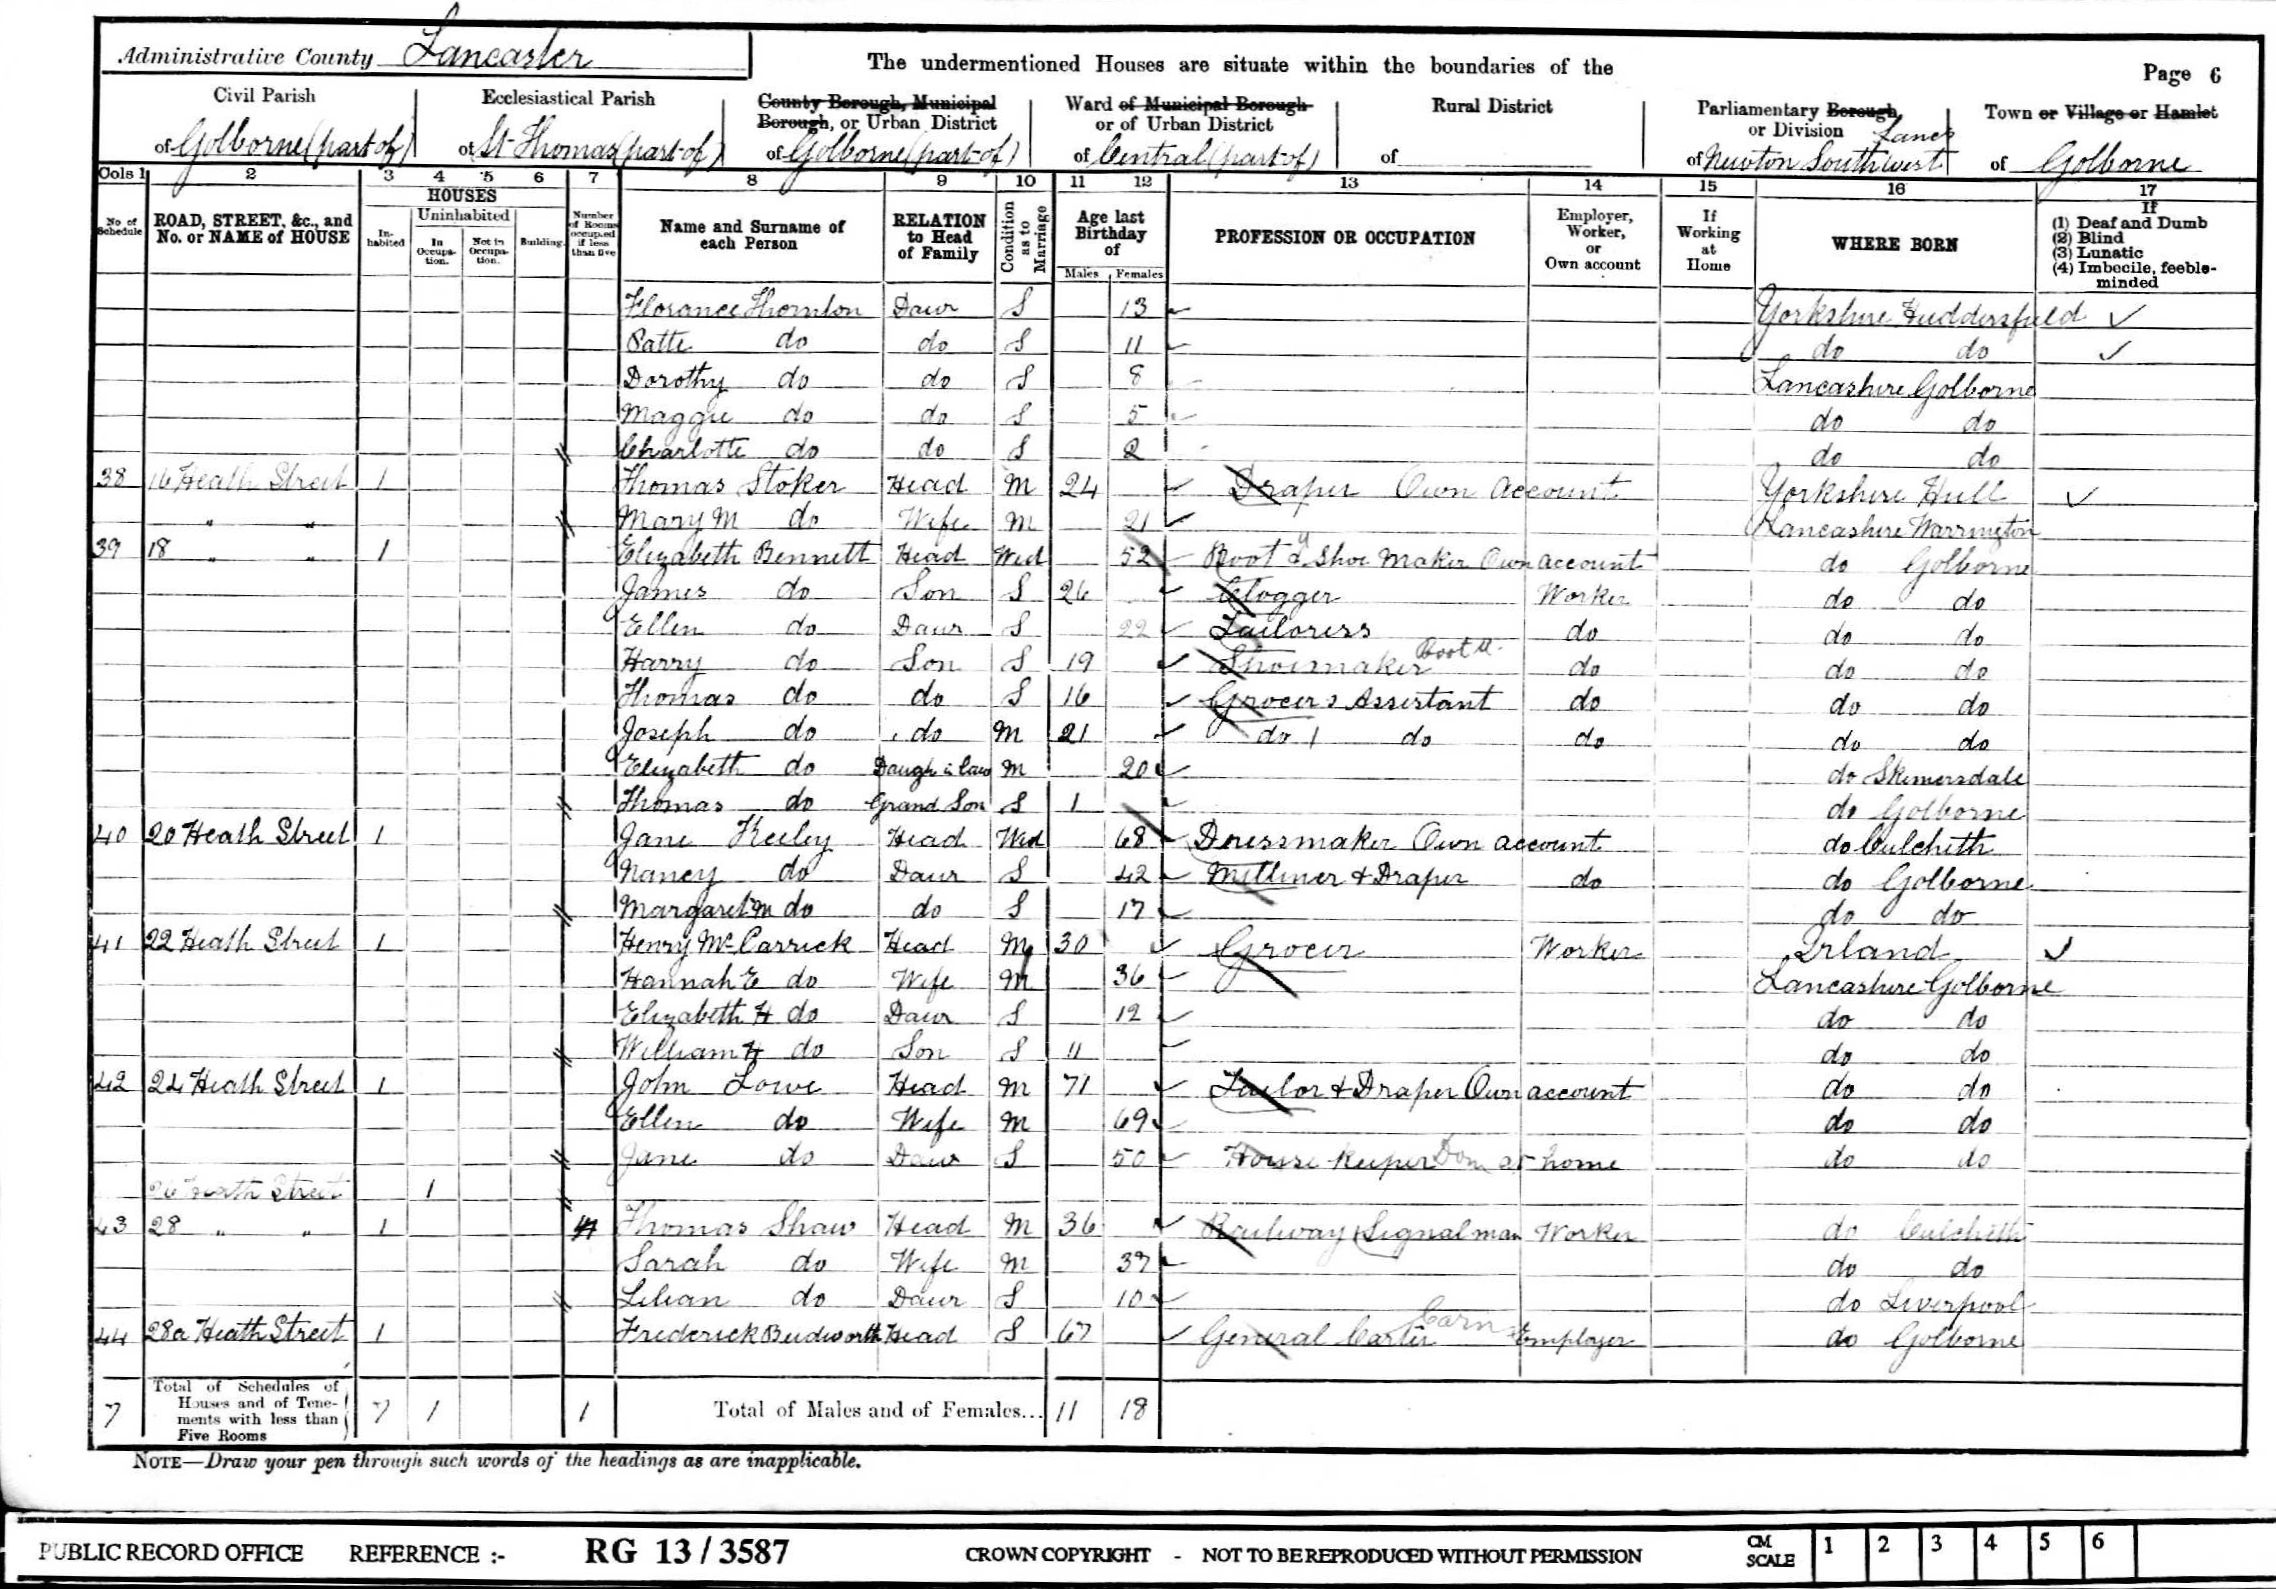 Administrative County Lancaster
The undermentioned Houses are situate within the boundaries of the
Page 6
Civil Parish of Golborne (part of)
Ecclesiastical Parish of St Thomas (part of)
County Borough, Municipal Borough, or Urban District of Golborne (part of)
Ward of Municipal Borough or of Urban District of Central (part of)
Rural District of
Parliamentary Borough, or Division of Lancs Newton Southwest
Town or Village or Hamlet of Golborne
Cols 1 2 3 4 5 6 7 8 9 10 11 12 13 14 15 16 17
No. of Schedule
ROAD, STREET, &c., and No. or NAME of HOUSE
HOUSES
Inhabited
Uninhabited
In Occupation.
Not in Occupation.
Building.
Number of Rooms occupied if less than five
Name and Surname of each Person
RELATION to Head of Family
Condition as to Marriage
Age last Birthday of
Males Females
PROFESSION OR OCCUPATION
Employer, Worker, or Own account
If Working at Home
WHERE BORN
If
(1) Deaf and Dumb
(2) Blind
(3) Lunatic
(4) Imbecile, feeble-minded
Florance Thornton Daur S 13 Yorkshire Huddersfield
Patte do do S 11 do do
Dorothy do do S 8 Lancashire Golborne
Maggie do do S 5 do do
Charlotte do do S 2 do do
38 16 Heath Street 1 Thomas Stoker Head M 24 Draper Own account Yorkshire Hull
" " Mary M do Wife M 21 Lancashire Warrington
39 18 " " 1 Elizabeth Bennett Head Wid 52 Boot & Shoe Maker Own account do Golborne
James do Son S 26 Clogger Worker do do
Ellen do Daur S 22 Tailoress do do do
Harry do Son S 19 Shoemaker Boot M. do do do
Thomas do do S 16 Grocers Assistant do do do
Joseph do do M 21 do do do do do
Elizabeth do Daugh in law M 20 do Skemersdale
Thomas do Grand Son S 1 do Golborne
40 20 Heath Street 1 Jane Keeley Head Wid 68 Dressmaker Own account do Culcheth
Nancy do Daur S 42 Milliner & Draper do do Golborne
Margaret M do do S 17 do do
41 22 Heath Street 1 Henry McCarrick Head M 30 Grocer Worker Irland
Hannah E do Wife M 36 Lancashire Golborne
Elizabeth H do Daur S 12 do do
William H do Son S 11 do do
42 24 Heath Street 1 John Lowe Head M 71 Tailor & Draper Own account do do
Ellen do Wife M 69 do do
Jane do Daur S 50 House Keeper Dom at home do do
26 Heath Street 1
43 28 " " 1 4 Thomas Shaw Head M 36 Railway Signalman Worker do Culcheth
Sarah do Wife M 37 do do
Lilian do Daur S 10 do Liverpool
44 28a Heath Street 1 Frederick Budworth Head S 67 General Carter Carn Employer do Golborne
7 Total of Schedules of Houses and of Tenements with less than Five Rooms 7 1 1 Total of Males and of Females... 11 18
NOTE—Draw your pen through such words of the headings as are inapplicable.
PUBLIC RECORD OFFICE REFERENCE :- RG 13 / 3587 CROWN COPYRIGHT - NOT TO BE REPRODUCED WITHOUT PERMISSION CM SCALE 1 2 3 4 5 6